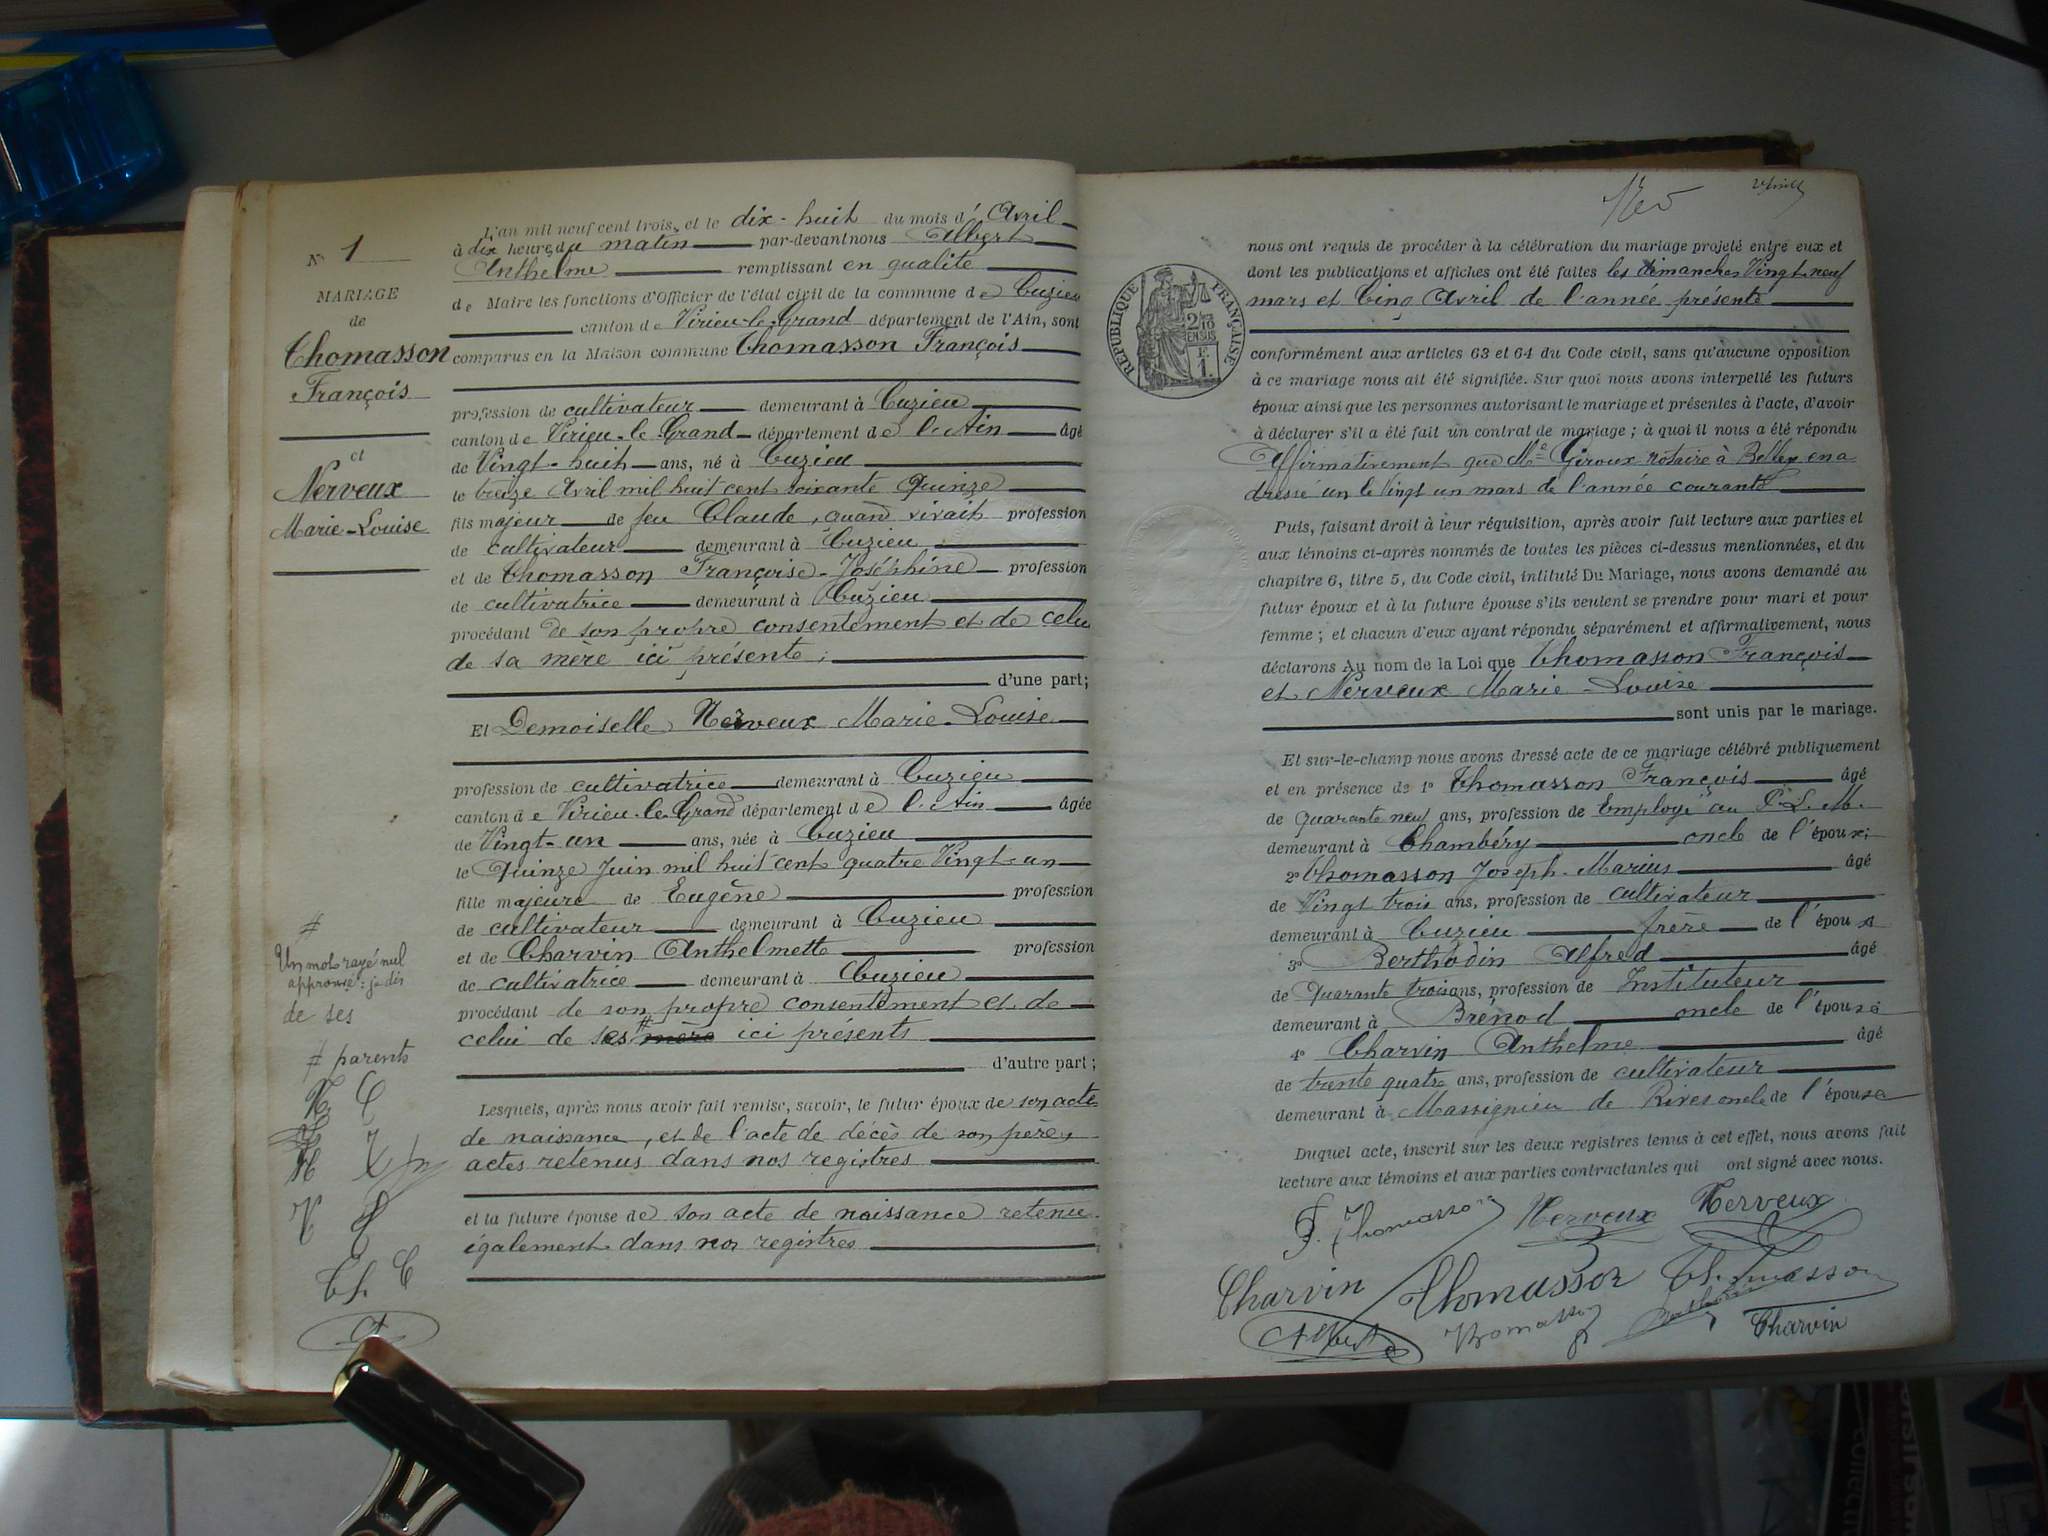 N° 1
MARIAGE
de
Thomasson
François
et
Nerveux
Marie-Louise
#
Un mot rayé nul
approuvé :
de ses
# parents
N C
Ch. C
A
L'an mil neuf cent trois, et le dix-huit du mois d' Avril
à dix heures du matin par-devant nous Albert
Anthelme remplissant en qualité
de Maire les fonctions d'Officier de l'état civil de la commune de Cuzieu
canton de Virieu-le-Grand département de l'Ain, sont
comparus en la Maison commune Thomasson François
profession de cultivateur demeurant à Cuzieu
canton de Virieu-le-Grand département de l'Ain âgé
de Vingt-huit ans, né à Cuzieu
le treize Avril mil huit cent soixante Quinze
fils majeur de feu Claude, quand vivait profession
de cultivateur demeurant à Cuzieu
et de Thomasson Françoise-Joséphine profession
de cultivatrice demeurant à Cuzieu
procédant de son propre consentement et de celui
de sa mère ici présente ;
d'une part ;
Et Demoiselle Nerveux Marie-Louise
profession de cultivatrice demeurant à Cuzieu
canton de Virieu-le-Grand département de l'Ain âgée
de Vingt-un ans, née à Cuzieu
le Quinze Juin mil huit cent quatre Vingt-un
fille majeure de Eugène profession
de cultivateur demeurant à Cuzieu
et de Charvin Anthelmette profession
de cultivatrice demeurant à Cuzieu
procédant de son propre consentement et de
celui de ses # mère ici présents
d'autre part ;
Lesquels, après nous avoir fait remise, savoir, le futur époux de son acte
de naissance, et de l'acte de décès de son père,
actes retenus dans nos registres
et la future épouse de son acte de naissance retenu
également dans nos registres
RÉPUBLIQUE FRANÇAISE
2/10
EN SUS
F.
1.
nous ont requis de procéder à la célébration du mariage projeté entre eux et
dont les publications et affiches ont été faites les dimanches Vingt-neuf
mars et Cinq Avril de l'année présente
conformément aux articles 63 et 64 du Code civil, sans qu'aucune opposition
à ce mariage nous ait été signifiée. Sur quoi nous avons interpellé les futurs
époux ainsi que les personnes autorisant le mariage et présentes à l'acte, d'avoir
à déclarer s'il a été fait un contrat de mariage ; à quoi il nous a été répondu
Affirmativement que Me Giroux notaire à Belley en a
dressé un le Vingt un mars de l'année courante
Puis, faisant droit à leur réquisition, après avoir fait lecture aux parties et
aux témoins ci-après nommés de toutes les pièces ci-dessus mentionnées, et du
chapitre 6, titre 5, du Code civil, intitulé Du Mariage, nous avons demandé au
futur époux et à la future épouse s'ils veulent se prendre pour mari et pour
femme ; et chacun d'eux ayant répondu séparément et affirmativement, nous
déclarons Au nom de la Loi que Thomasson François
et Nerveux Marie-Louise
sont unis par le mariage.
Et sur-le-champ nous avons dressé acte de ce mariage célébré publiquement
et en présence de 1° Thomasson François âgé
de Quarante neuf ans, profession de Employé au P.L.M.
demeurant à Chambéry oncle de l'époux ;
2° Thomasson Joseph-Marius âgé
de Vingt trois ans, profession de cultivateur
demeurant à Cuzieu frère de l'époux
3° Berthodin Alfred âgé
de Quarante trois ans, profession de Instituteur
demeurant à Brénod oncle de l'épouse
4° Charvin Anthelme âgé
de trente quatre ans, profession de cultivateur
demeurant à Massignieu de Rives oncle de l'épouse
Duquel acte, inscrit sur les deux registres tenus à cet effet, nous avons fait
lecture aux témoins et aux parties contractantes qui ont signé avec nous.
F. Thomasson Nerveux Nerveux
Charvin Thomasson Thomasson
Albert Thomasson Charvin